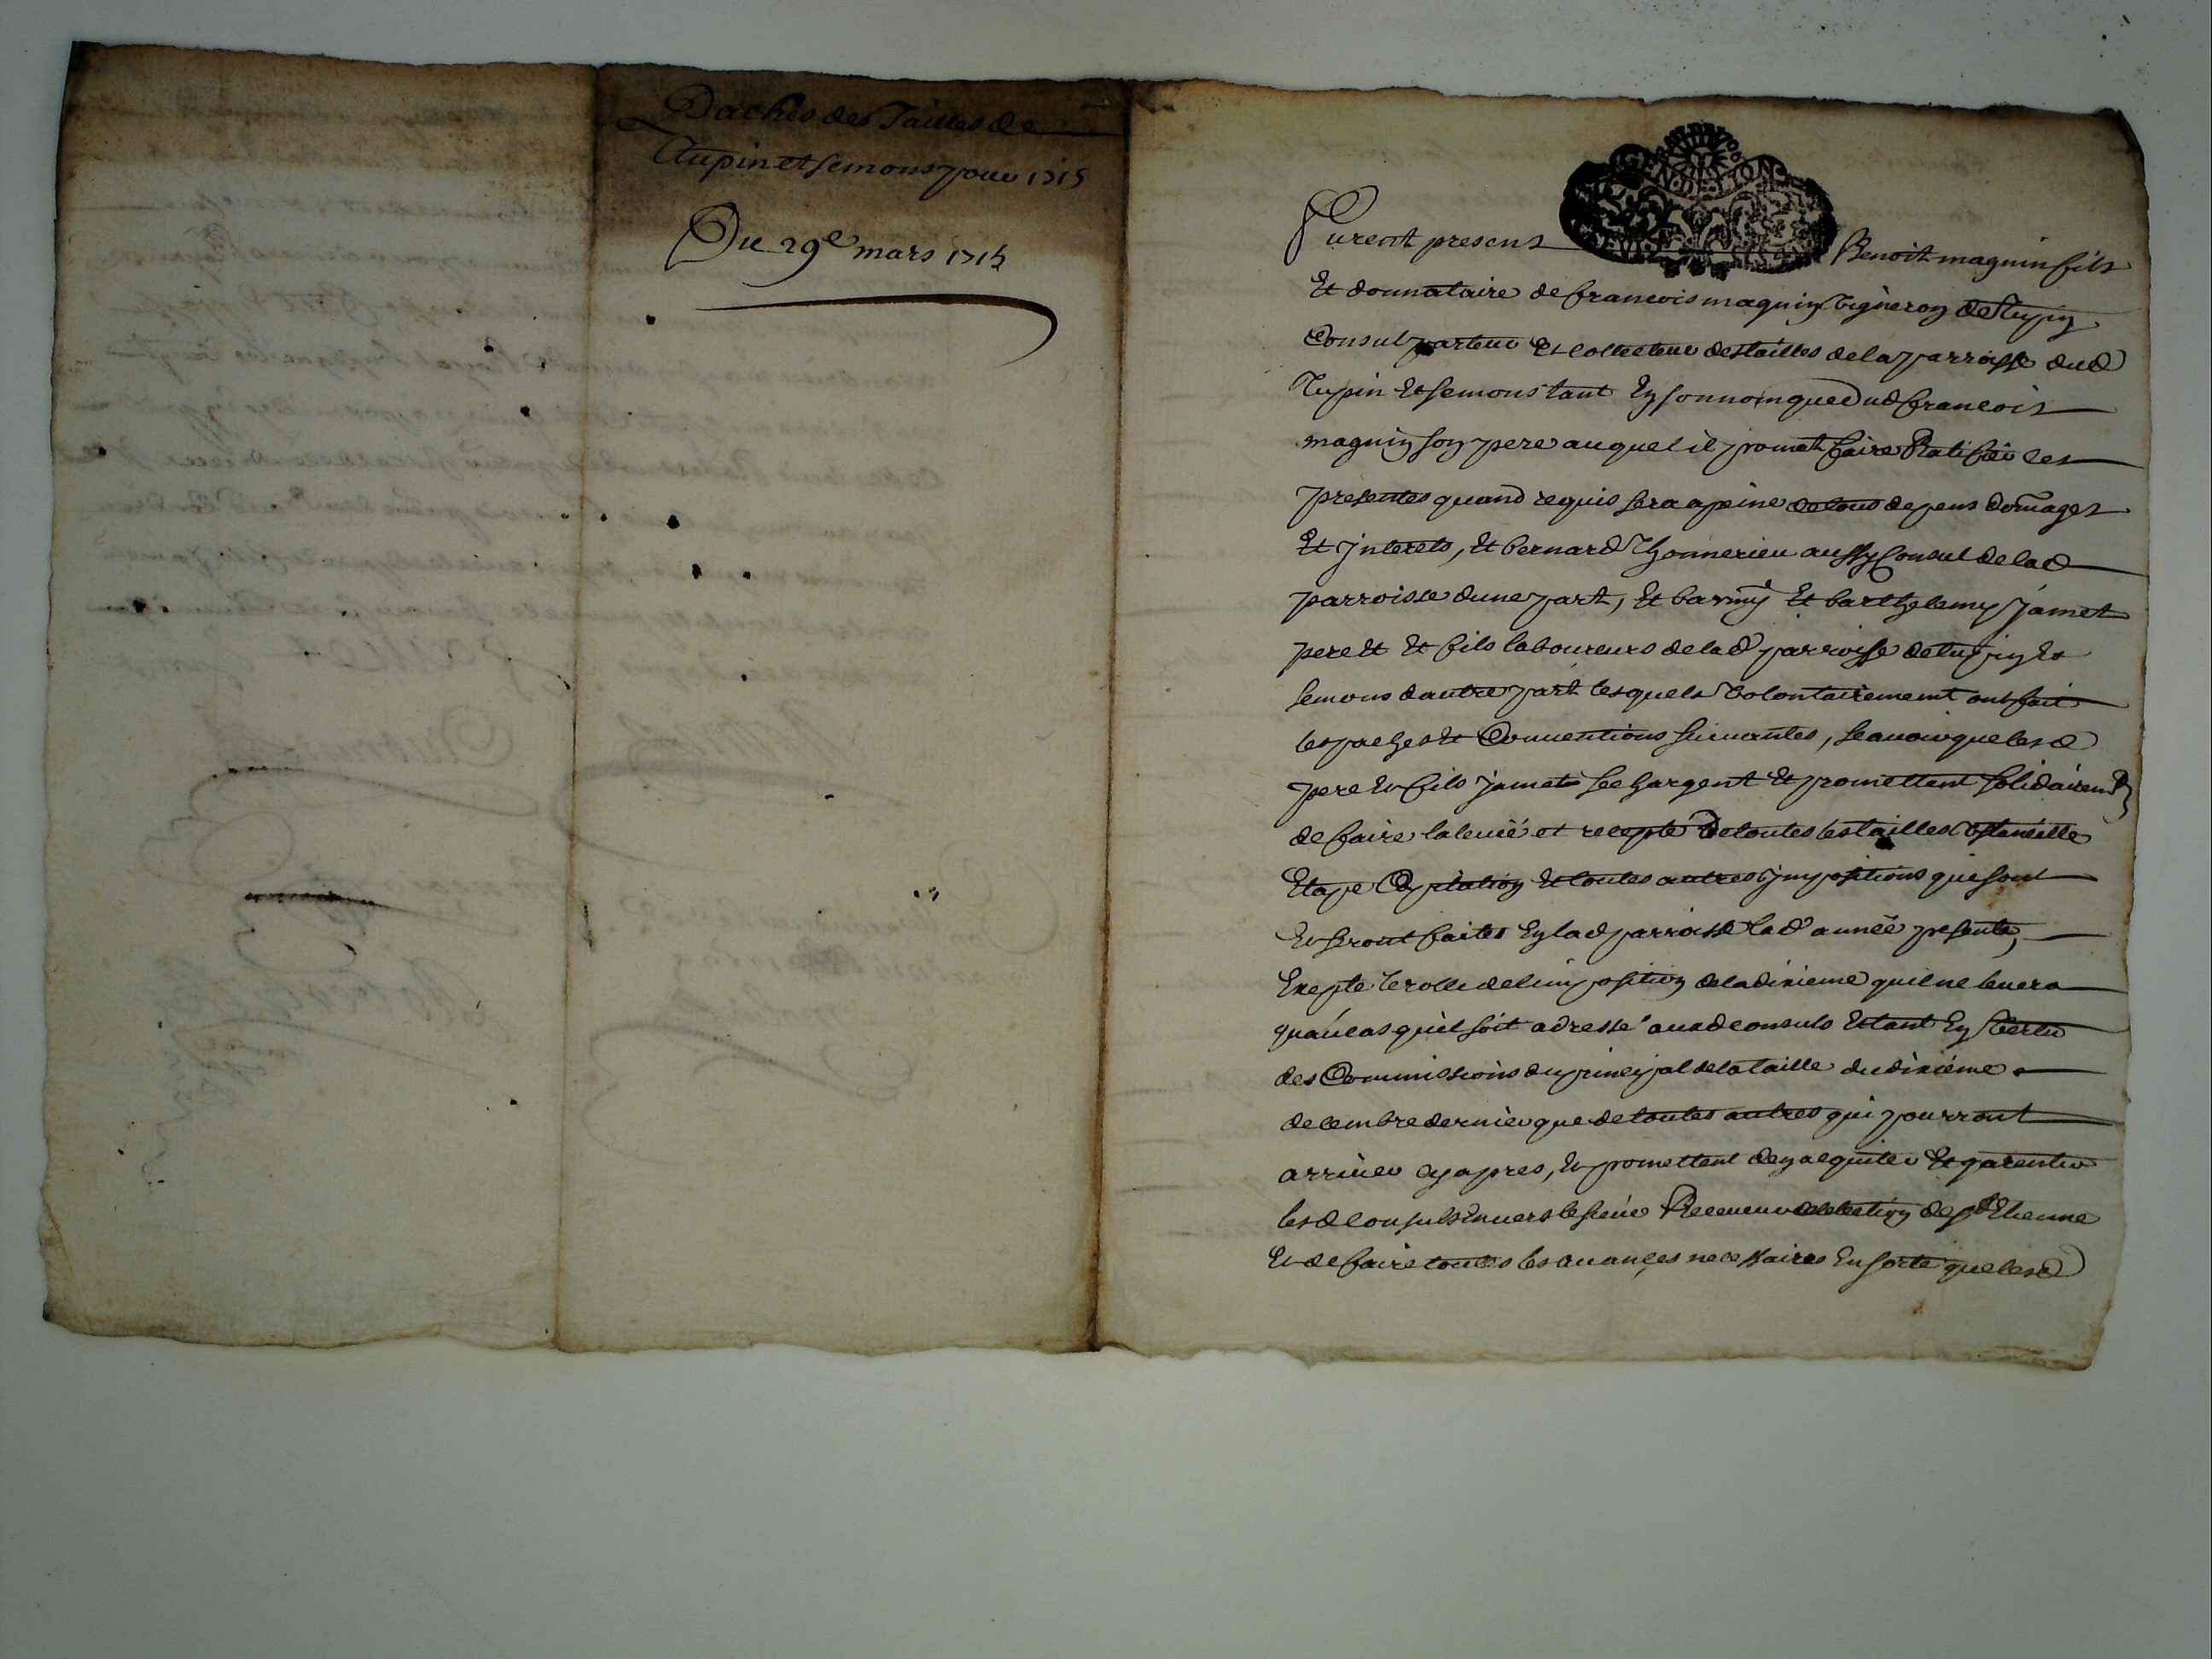 Paches des Tailles de
Tupin et Semons pour 1715
Du 29e mars 1715
GENERAL
DE LION
Furent presens Benoit magnin fils
Et donnataire de francois magnin vigneron de Tupin
Consul parteur Et Collecteur des tailles de la parroisse dud
Tupin Et Semons tant En son nom que dud francois
magnin son pere auquel il promet faire Ratifier les
presentes quand requis sera a peine de tous depens domages
Et Interets, Et bernard Thonnerieu aussy Consul de lad
parroisse dune part, Et barmy Et barthelemy Jamet
pere Et Et fils laboureurs de lad parroisse de tupin Et
Semons dautre part lesquels volontairement ont fait
les paches Et Conventions suivantes, scavoir que lesd
pere Et fils Jamet se chargent Et promettent solidairemt
de faire la levée et recepte de toutes les tailles Ustancille
Etape Capitation Et toutes autres Impositions qui sont
Et seront faites En lad parroisse lad année presente,
Exepte le rolle de limposition de la dixieme quil ne levera
quau cas quil soit adressé auxd consuls Et tant En vertu
des Commissions du principal de la taille du dixiéme
decembre dernier que de toutes autres qui pourront
arriver cy apres, Et promettent den acquiter Et garentir
lesd Consuls Envers le sieur Receveur de lelection de St Etienne
Et de faire toutes les avances necessaires En sorte que lesd